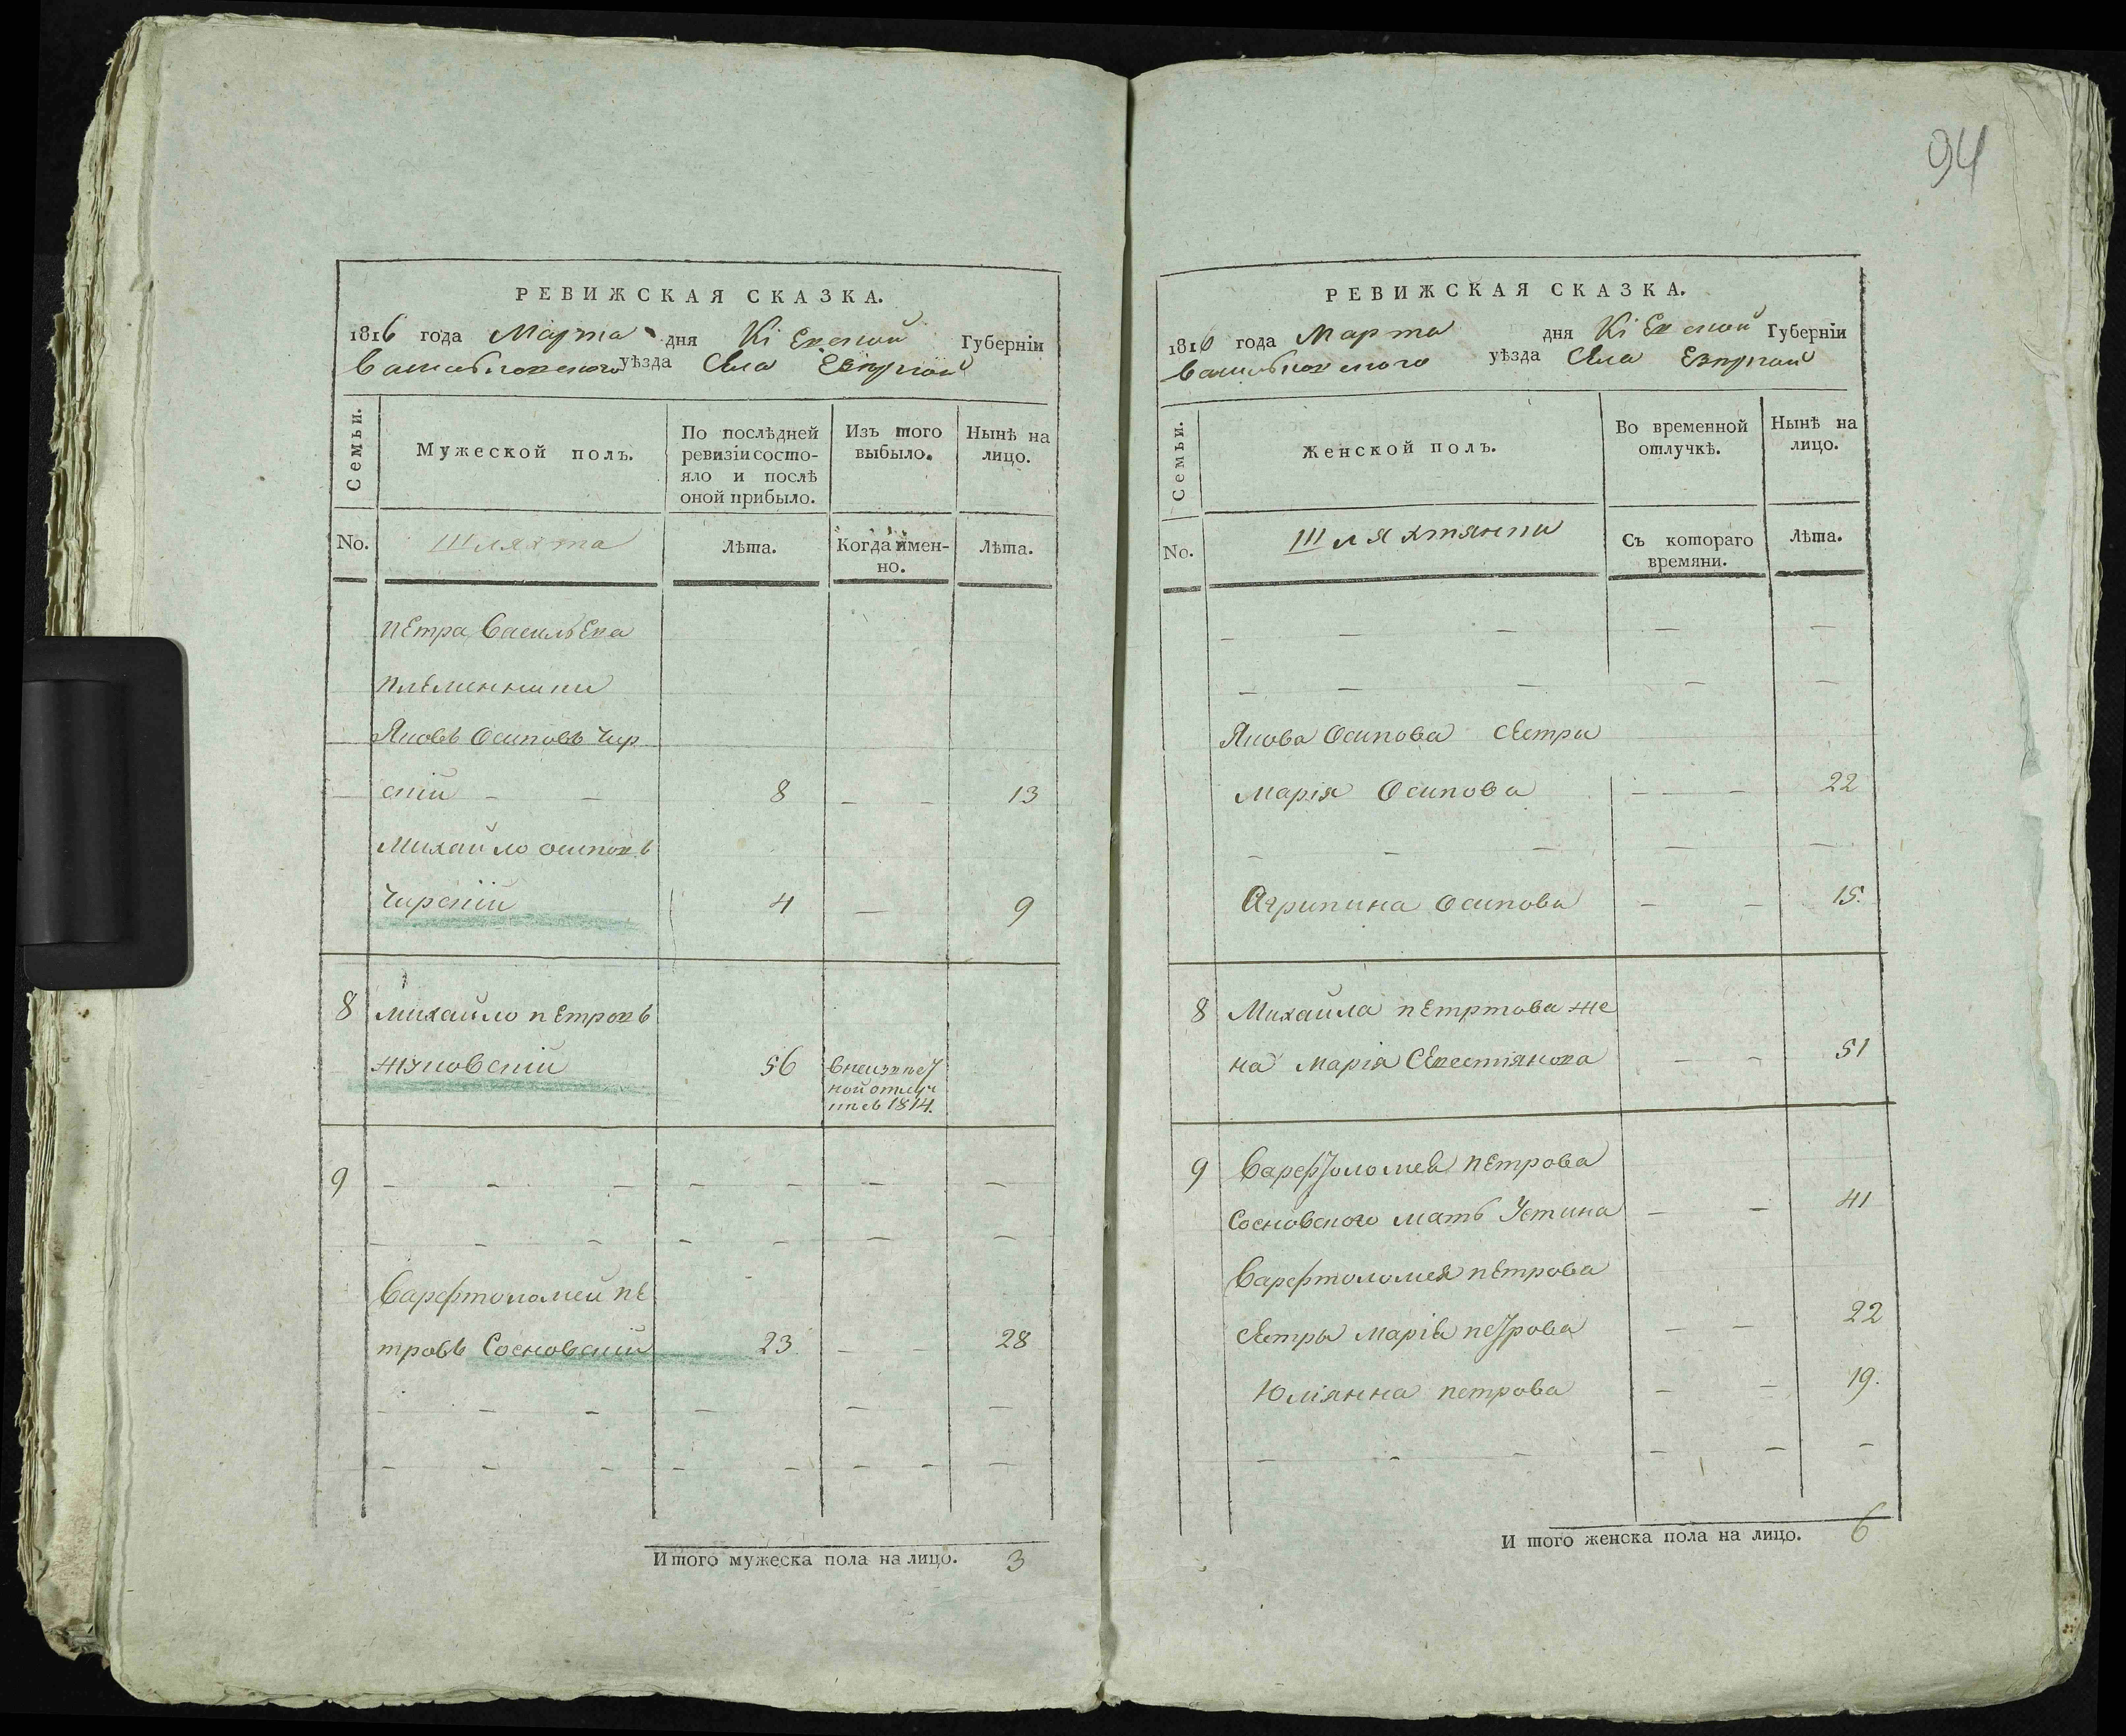 94
РЕВИЖСКАЯ СКАЗКА.
1816 года Марта дня Кіевской Губерніи
Васильковского уѣзда Села
Семьи.
Мужеской полъ.
По послѣдней
ревизіи состо-
яло и послѣ
оной прибыло.
Изъ того
выбыло.
Нынѣ на
лицо.
No.
Шляхта
Лѣта.
Когда имен-
но.
Лѣта.
Петра Васильева
племянники
Яковъ Осиповъ Чир
скій - - 8 - - 13
Михайло Осиповъ
Чирскій 4 - 9
8 Михайло Петровъ
Жуковскій 56
1814.
9 - - - - - - -
- - - - - - -
Варфтоломей Пе
тровъ Сосновскій 23 - - 28
- - - - - -
- - - - - - - -
Итого мужеска пола на лицо. 3
РЕВИЖСКАЯ СКАЗКА.
1816 года Марта дня Кіевской Губерніи
Васильковского уѣзда Села
Семьи.
Женской полъ.
Во временной
отлучкѣ.
Нынѣ на
лицо.
No.
Шляхтянки
Съ котораго
времяни.
Лѣта.
- - - - -
- - - - -
Якова Осипова сестры
Марія Осипова - - - 22
- - - - -
Агрипина Осипова - - 15.
8 Михайла Петртова же
на Марія Севестіянова - - 51
9 Варефтоломея Петрова
Сосновского мать Устина - - 41
Варефтоломея Петрова
сестры Марія Петрова - - 22
Юліянна Петрова - - 19.
- - - - - -
И того женска пола на лицо. 6